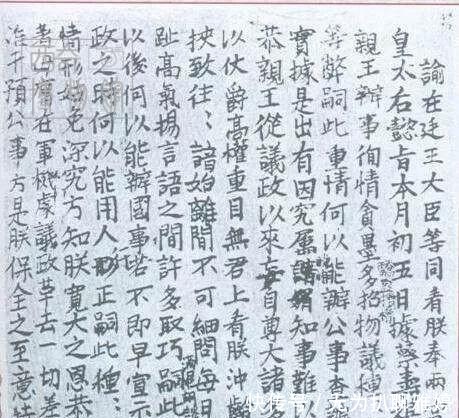 諭在廷王大臣等同看朕奉兩
皇太右懿旨本月初五日據蔡
親王辦事徇情貪墨多招物議種
等弊嗣此重情何以能辦公事查
實據是出有因究屬知事難
恭親王從議政以來妄自尊大諸
以仗爵高權重目無君上看朕沖
挾致往〻諳始離間不可細問每日
趾高氣揚言語之間許多取巧
以後何以能辦國事若不即早宣示
政之時何以能用人行正嗣此種〻
情形姑免深究方知朕寬大之恩恭
着毋庸在軍機處議政革去一切差
准干預公事方是朕保全之至意
快传号